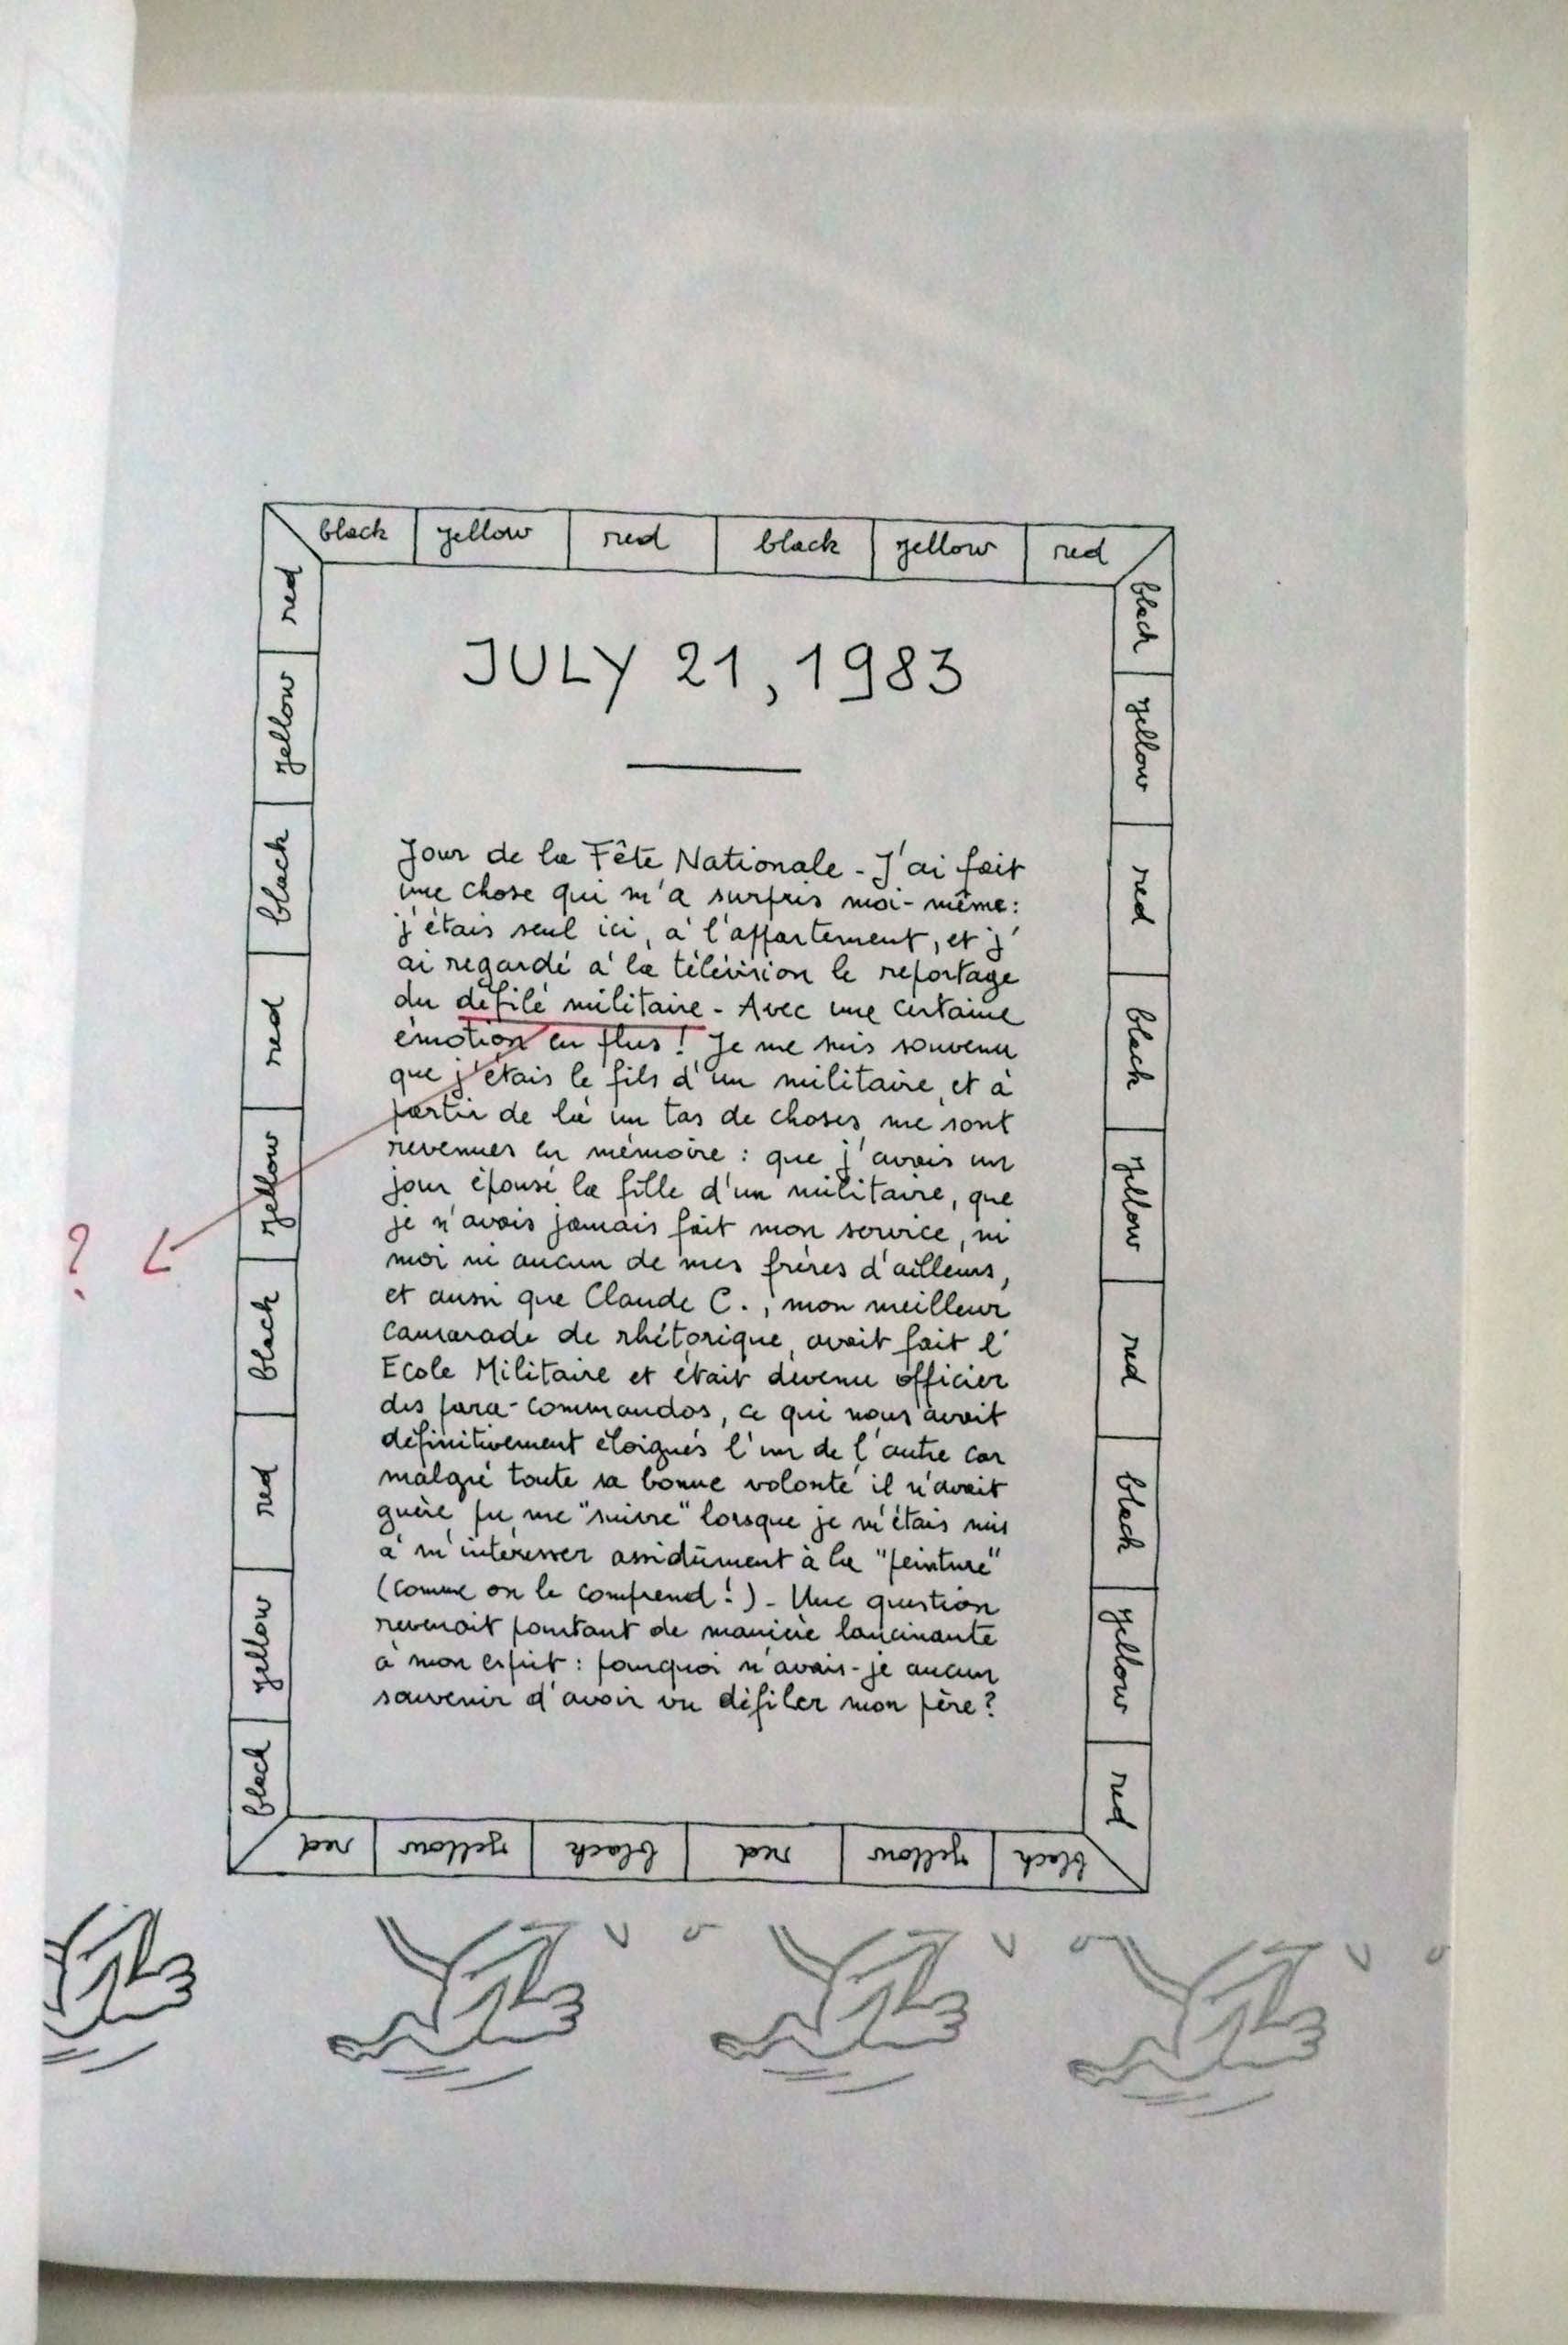 black yellow red black yellow red
black yellow red black yellow red black yellow red
JULY 21, 1983
Jour de la Fête Nationale - J'ai fait
une chose qui m'a surpris moi-même :
j'étais seul ici, à l'appartement, et j'
ai regardé à la télévision le reportage
du défilé militaire - Avec une certaine
émotion en plus ! Je me suis souvenu
que j'étais le fils d'un militaire, et à
partir de là un tas de choses me sont
revenues en mémoire : que j'avais un
jour épousé la fille d'un militaire, que
je n'avais jamais fait mon service, ni
moi ni aucun de mes frères d'ailleurs,
et aussi que Claude C., mon meilleur
camarade de rhétorique, avait fait l'
Ecole Militaire et était devenu officier
des para-commandos, ce qui nous avait
définitivement éloignés l'un de l'autre car
malgré toute sa bonne volonté il n'avait
guère pu me "suivre" lorsque je m'étais mis
à m'intéresser assidûment à la "peinture"
(comme on le comprend !) - Une question
revenait pourtant de manière lancinante
à mon esprit : pourquoi n'avais-je aucun
souvenir d'avoir vu défiler mon père ?
black yellow red black yellow red
black yellow red black yellow red black yellow red
?